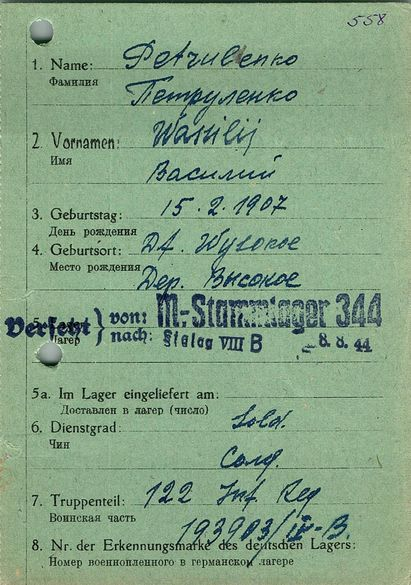 558
1. Name: Petrulenko
Фамилия
Петруленко
2. Vornamen: Wasilij
Имя
Василий
3. Geburtstag: 15.2.1907
День рождения
4. Geburtsort: Df. Wysokoe
Место рождения
Дер. Высокое
Versetzt } von: M.-Stammlager 344
Лагер nach: Stalag VIII B 8. 8. 44
5a. Im Lager eingeliefert am:
Доставлен в лагер (число)
6. Dienstgrad: Sold.
Чин
Солд.
7. Truppenteil: 122 Inf Reg
Воинская часть
193903/IV-B.
8. Nr. der Erkennungsmarke des deutschen Lagers:
Номер военнопленного в германском лагере